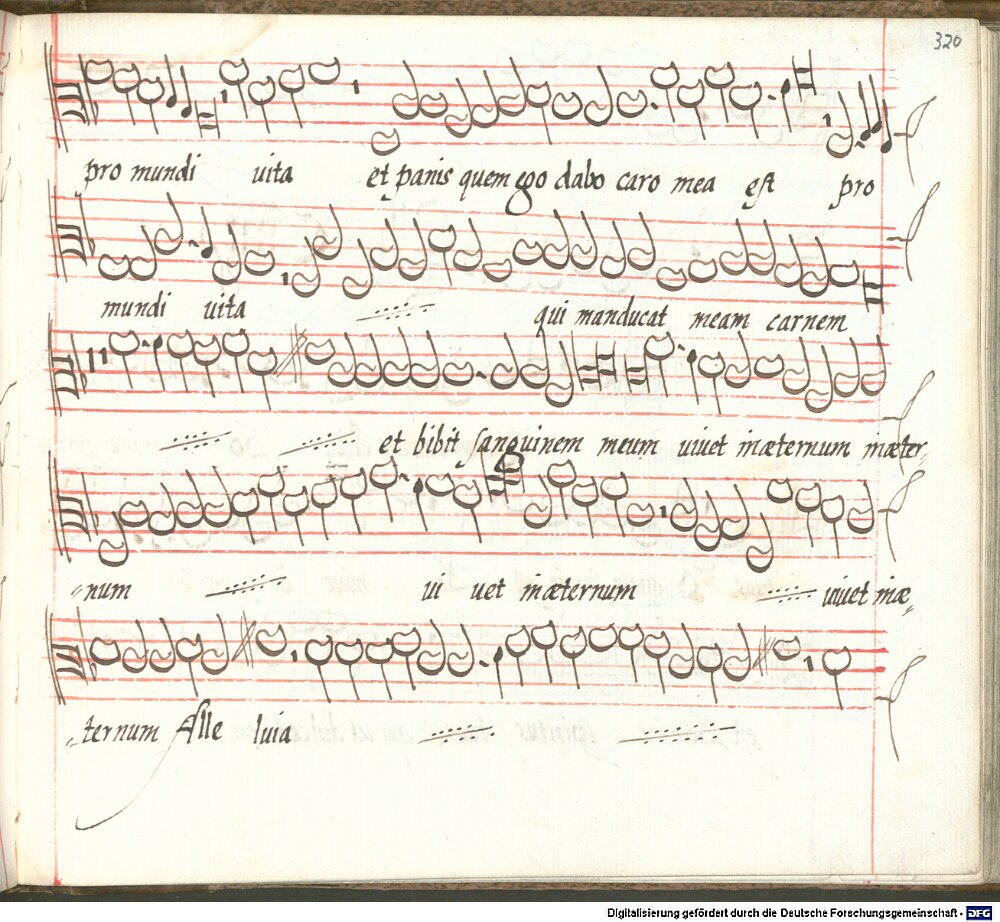 320
pro mundi uita et panis quem ego dabo caro mea est pro
mundi uita qui manducat meam carnem
et bibit sanguinem meum uiuet inæternum inæter-
-num ui uet inæternum uiuet inæ-
-ternum Alle luia
Digitalisierung gefördert durch die Deutsche Forschungsgemeinschaft - DFG